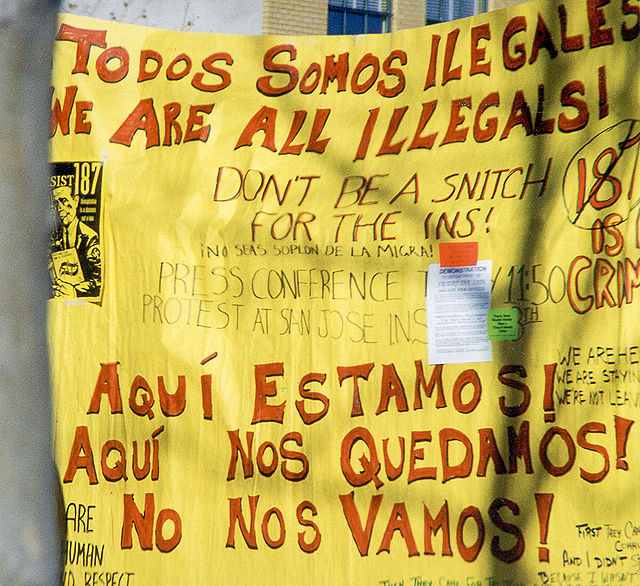 TODOS SOMOS ILEGALES
WE ARE ALL ILLEGALS!
SIST 187
DON'T BE A SNITCH
FOR THE INS!
¡NO SEAS SOPLON DE LA MIGRA!
187
IS
CRIM
PRESS CONFERENCE 11:50
PROTEST AT SAN JOSE INS TH
DEMONSTRATION
AQUÍ ESTAMOS!
WE ARE HE
WE ARE STAYIN
WE'RE NOT LEAV
AQUÍ NOS QUEDAMOS!
NO NOS VAMOS!
ARE
UMAN
RESPECT
FIRST THEY CA
AND I DIDN'T S
BECAUSE I WASN'T
THEN THEY CAME FOR